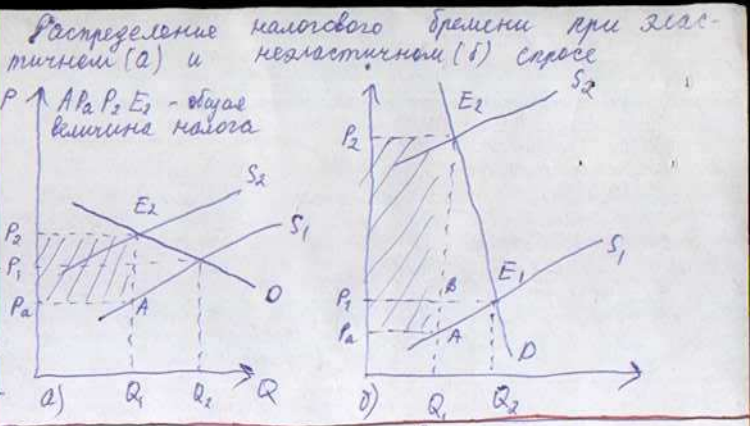 Распределение налогового бремени при элас-
тичном (а) и неэластичном (б) спросе
P
APaP2E2 - общая
величина налога
E2
S2
S1
P2
P1
Pa
A
D
а)
Q1
Q2
Q
E2
S2
P2
S1
E1
P1
B
Pa
A
D
б)
Q1
Q2